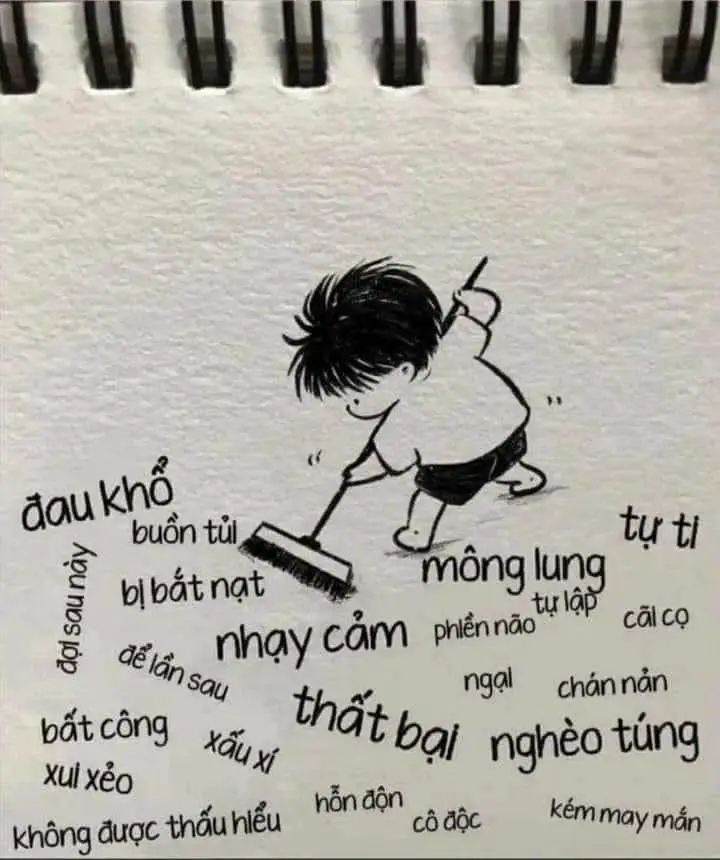 đau khổ
buồn tủi
tự ti
đợi sau này
bị bắt nạt
mông lung
tự lập
nhạy cảm
phiền não
cãi cọ
để lần sau
ngại
chán nản
bất công
xấu xí
thất bại
nghèo túng
xui xẻo
hỗn độn
cô độc
kém may mắn
không được thấu hiểu